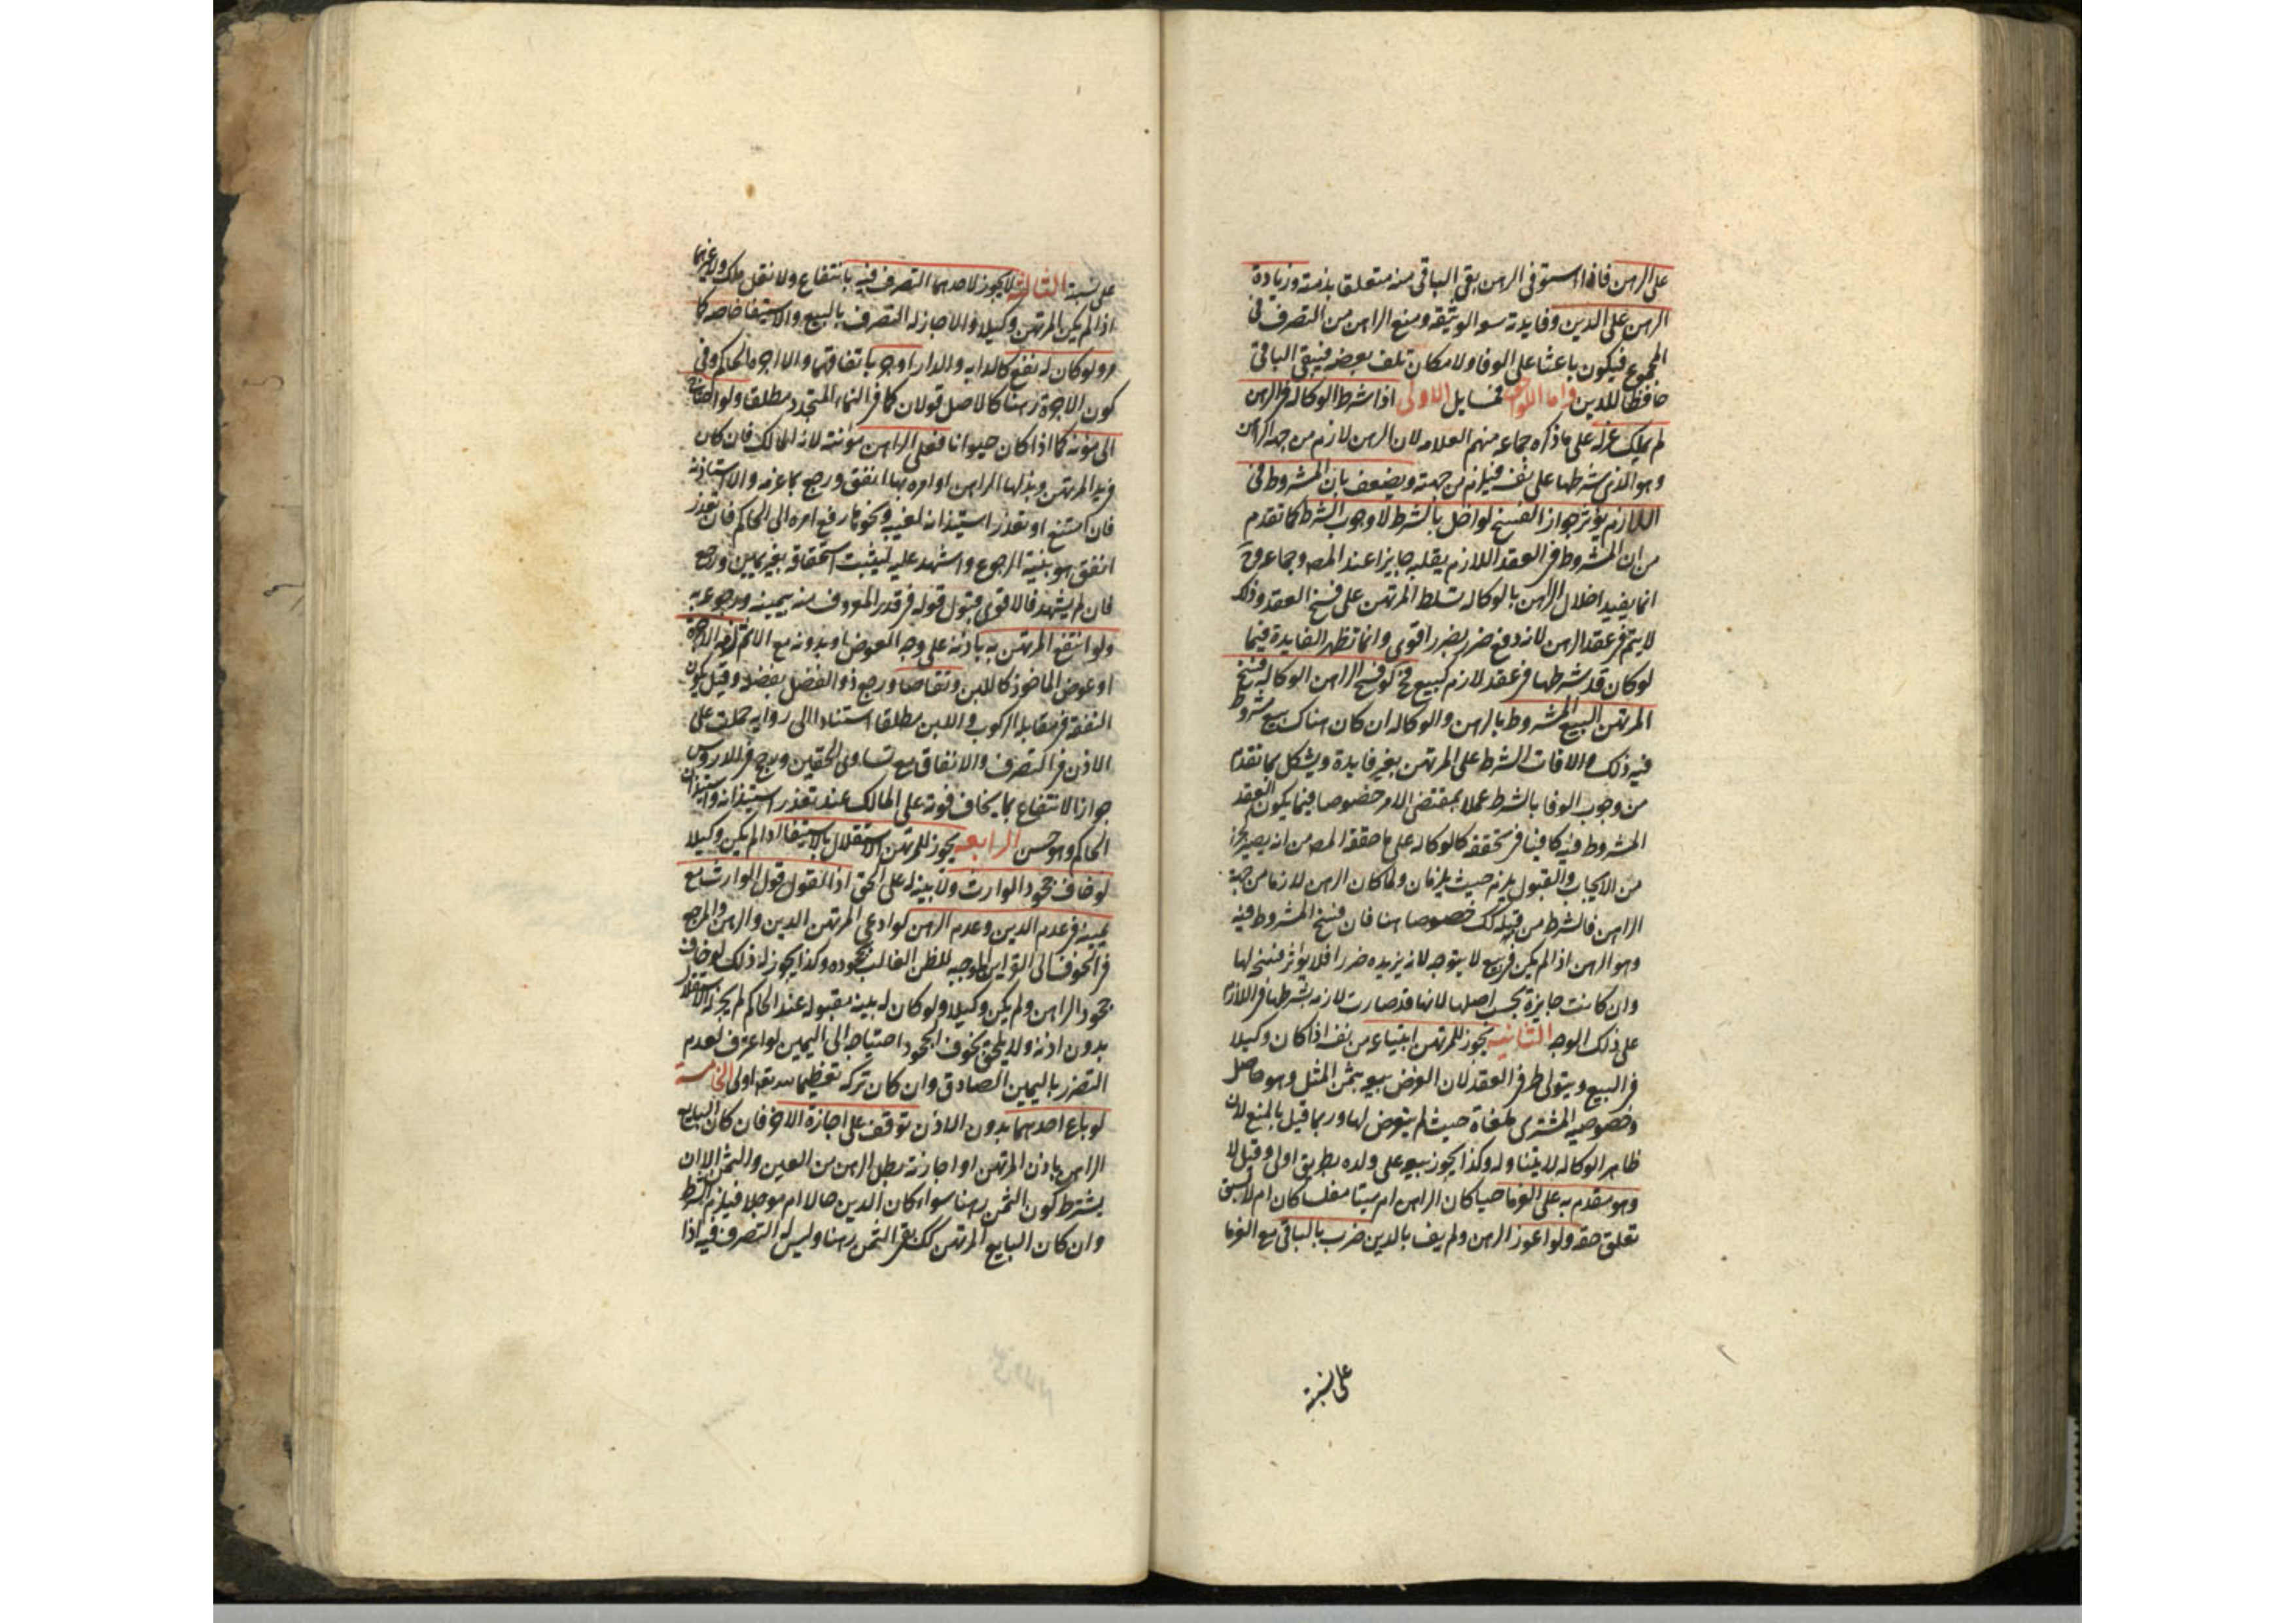 على الرهن فاذا استوفى الرهن بقى الباقى منه متعلقا بذمته وزيادة
الرهن على الدين وفايدته سو الوثيقه ومنع الراهن من التصرف فى
المجموع فيكون باعثا على الوفا ولامكان تلف بعضه فيبقى الباقى
حافظا للدين واما اللواحق فمسايل الاولى اذا شرط الوكاله فى الرهن
لم يملك عزله على ما ذكره جماعه منهم العلامه لان الرهن لازم من جهه الراهن
وهو الذى شرطها على نفسه فيلزم من جهته ويضعف بان المشروط فى
اللازم يؤثر جواز الفسخ لو اخل بالشرط لا وجوب الشرط كما تقدم
من ان المشروط فى العقد اللازم يقلبه جايزا عند المص وجماعه فح
انما يفيد اخلال الراهن بالوكاله تسلط المرتهن على فسخ العقد وذلك
لا يتم فى عقد الرهن لانه دفع ضرر بضرر اقوى وانما تظهر الفايدة فيما
لو كان قد شرطها فى عقد لازم كبيع فح لو فسخ الراهن الوكاله فسخ
المرتهن البيع المشروط بالرهن والوكاله ان كان هناك بيع مشروط
فيه ذلك والا فات الشرط على المرتهن بغير فايدة ويشكل بما تقدم
من وجوب الوفا بالشرط عملا بمقتضى الامر خصوصا فيما يكون العقد
المشروط فيه كافيا فى تحققه كالوكاله على ما حققه المص من انه يصير كجزء
من الايجاب والقبول يلزم حيث يلزمان ولما كان الرهن لازما من جهة
الراهن فالشرط من قبله كك خصوصا هنا فان فسخ المشروط فيه
وهو الرهن اذا لم يكن فى بيع لا يتوجه لانه يزيده ضررا فلا يؤثر فسخه لها
وان كانت جايزة بحسب اصلها لانها قد صارت لازمه بشرطها فى اللازم
على ذلك الوجه الثانيه يجوز للمرتهن ابتياعه من نفسه اذا كان وكيلا
فى البيع ويتولى طرفى العقد لان الغرض بيعه بثمن المثل وهو حاصل
وخصوصيه المشترى ملغاة حيث لم يتعرض لها وربما قيل بالمنع لان
ظاهر الوكاله لا يتناوله وكذا يجوز بيعه على ولده بطريق اولى وقيل لا
وهو مقدم به على الغرما حيا كان الراهن ام ميتا مفلسا كان ام لا لسبق
تعلق حقه ولو اعوز الرهن ولم يف بالدين ضرب بالباقى مع الغرما
على نسبة
على نسبة الثالثه لا يجوز لاحدهما التصرف فيه بانتفاع ولا نقل ملك ولا غيرهما
اذا لم يكن المرتهن وكيلا والا جاز له التصرف بالبيع والاستيفا خاصه كما
مر ولو كان له نفع كالدابه والدار اوجر باتفاقهما والا اجره الحاكم وفى
كون الاجرة رهنا كالاصل قولان كما فى النماء المتجدد مطلقا ولو احتاج
الى مؤنه كما اذا كان حيوانا فعلى الراهن مؤنته لانه المالك فان كان
فى يد المرتهن وبذلها الراهن او امره بها انفق ورجع بما غرم والا استاذنه
فان امتنع او تعذر استيذانه لغيبه ونحوها رفع امره الى الحاكم فان تعذر
انفق هو بنية الرجوع واشهد عليه ليثبت استحقاقه بغير يمين ورجع
فان لم يشهد فالاقوى قبول قوله فى قدر المعروف منه بيمينه ورجوعه به
ولو انتفع المرتهن به باذنه على وجه العوض او بدونه مع الاثم لزمه الاجرة
او عوض الماخوذ كاللبن وتقاصا ورجع ذو الفضل بفضله وقيل تكون
النفقة فى مقابله الركوب واللبن مطلقا استنادا الى روايه حملت على
الاذن فى التصرف والانفاق مع تساوى الحقين ورجح فى الدروس
جواز الانتفاع بما يخاف فوته على المالك عند تعذر استيذانه واستيذان
الحاكم وهو حسن الرابعه يجوز للمرتهن الاستقلال بالاستيفا اذا لم يكن وكيلا
لو خاف جحود الوارث ولا بينه له على الحق اذ القول قول الوارث مع
يمينه فى عدم الدين وعدم الرهن لو ادعى المرتهن الدين والرهن والمرجع
فى الخوف الى القراين الموجبه للظن الغالب بجحوده وكذا يجوز له ذلك لو خاف
جحود الراهن ولم يكن وكيلا ولو كان له بينه مقبوله عند الحاكم لم يجز له الاستقلال
بدون اذنه ولا يلحق بخوف الجحود احتياجه الى اليمين لو اعترف لعدم
التضرر باليمين الصادق وان كان تركه تعظيما لله تع اولى الخامسة
لو باع احدهما بدون الاذن توقف على اجازة الاخر فان كان البايع
الراهن باذن المرتهن او اجازته بطل الرهن من العين والثمن الا ان
يشترط كون الثمن رهنا سواء كان الدين حالا ام موجلا فيلزم الشرط
وان كان البايع المرتهن كك بقى الثمن رهنا وليس له التصرف فيه اذا